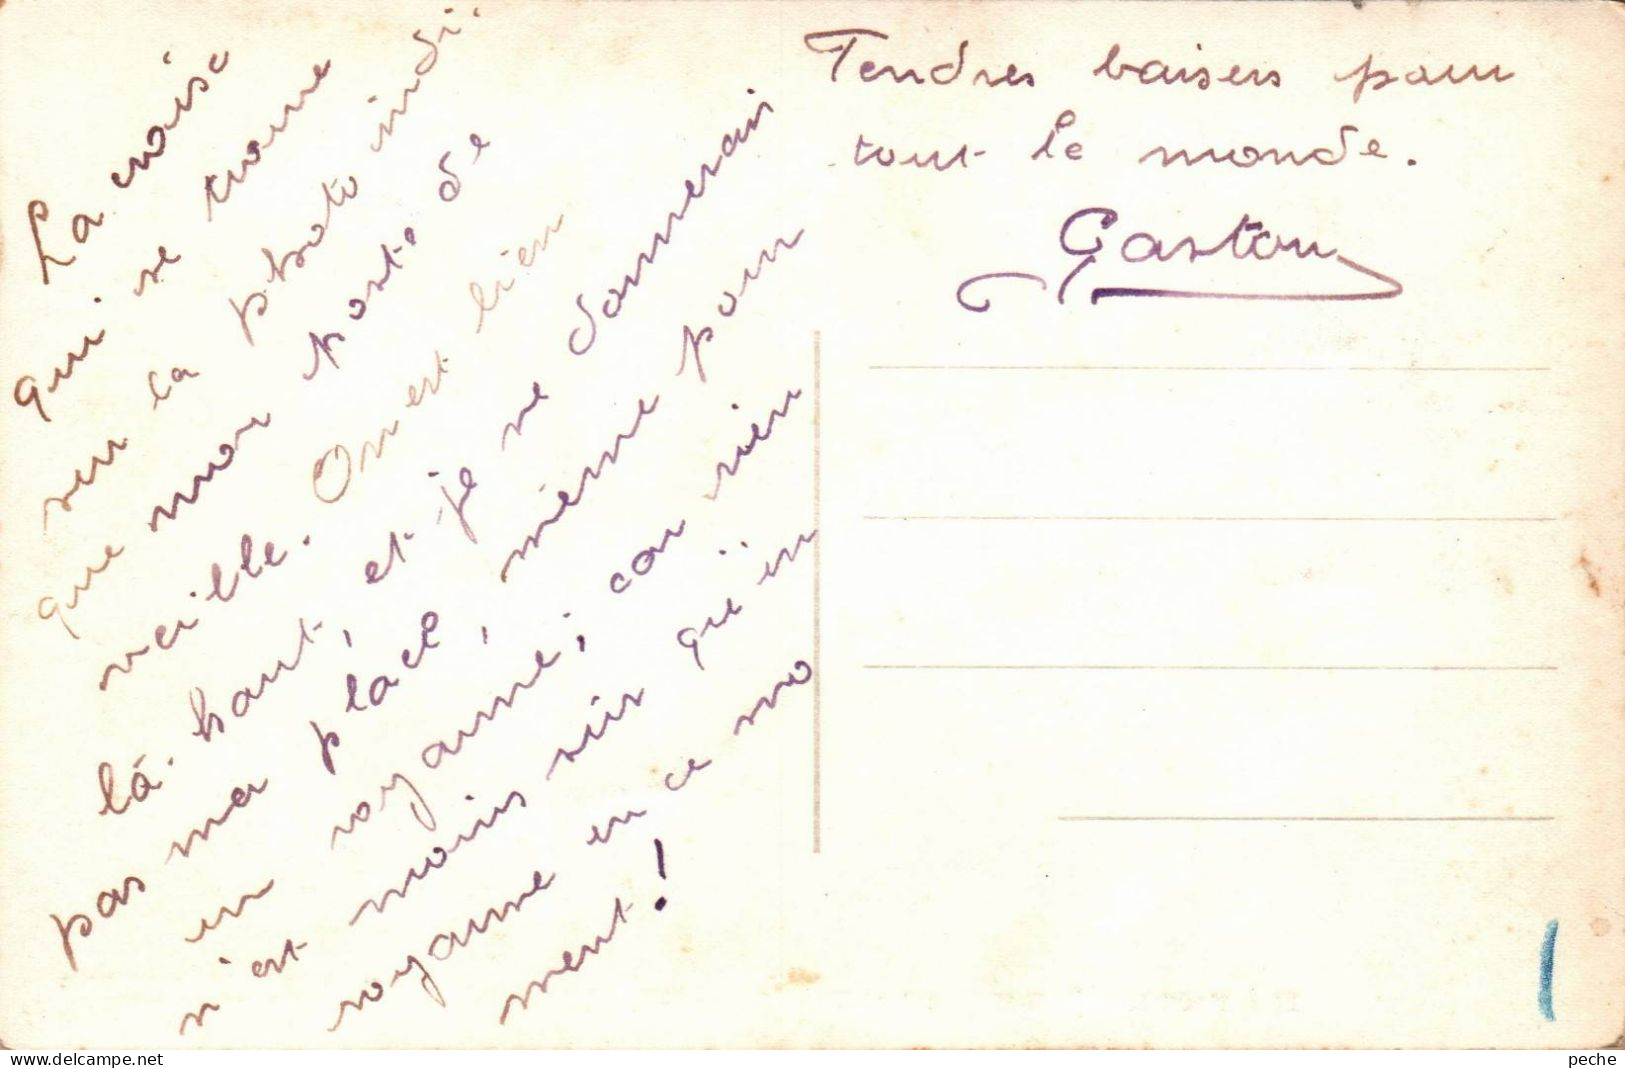 La croise
qui se trouve
sur la photo indi.
que mon poste de
veille. On est bien
là-haut, et je ne donnerais
pas ma place, même pour
un royaume; car rien
n'est moins sûr qu'un
royaume en ce mo
ment!
Tendres baisers pour
tout le monde.
Gaston
www.delcampe.net
peche